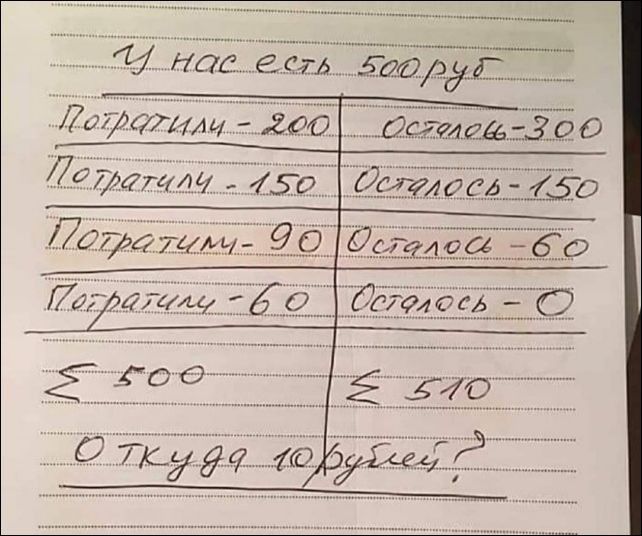 У нас есть 500 руб
Потратили - 200 Осталось - 300
Потратили - 150 Осталось - 150
Потратили - 90 Осталось - 60
Потратили - 60 Осталось - 0
Σ 500 Σ 510
Откуда 10 рублей?